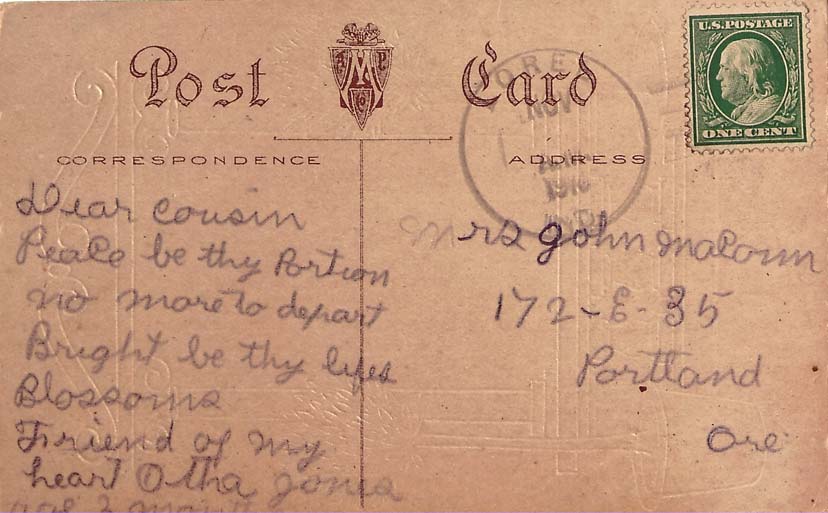 Post Card
A M P Co
U.S. POSTAGE
ONE CENT
ORE
NOV
1910
CORRESPONDENCE
ADDRESS
Dear cousin
Peace be thy Portion
no more to depart
Bright be thy lifes
Blossoms
Friend of my
heart Otha Jones
age 2
Mrs John
172-E-35
Portland
Ore